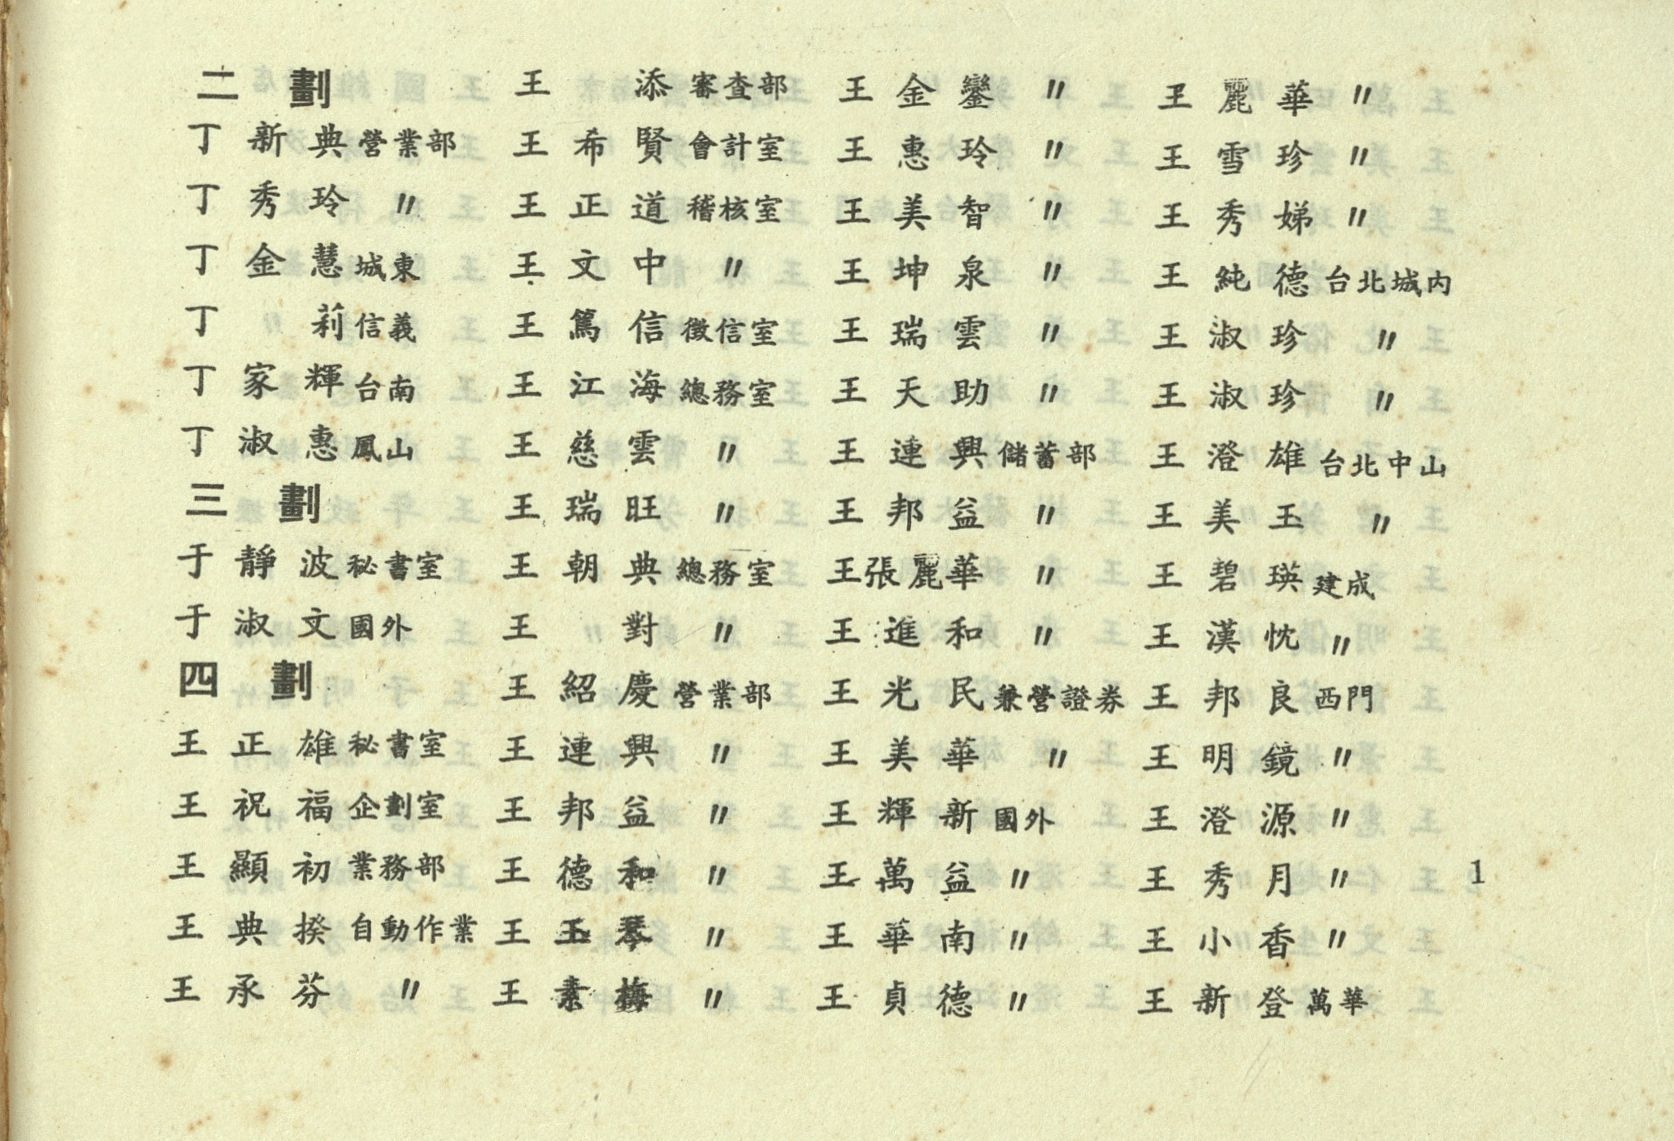 二劃
丁新典 營業部
丁秀玲 〃
丁金慧 城東
丁莉 信義
丁家輝 台南
丁淑惠 鳳山
三劃
于靜波 秘書室
于淑文 國外
四劃
王正雄 秘書室
王祝福 企劃室
王顯初 業務部
王典揆 自動作業
王承芬 〃
王添 審查部
王希賢 會計室
王正道 稽核室
王文中 〃
王篤信 徵信室
王江海 總務室
王慈雲 〃
王瑞旺 〃
王朝典 總務室
王對 〃
王紹慶 營業部
王連興 〃
王邦益 〃
王德和 〃
王玉琴 〃
王素梅 〃
王金鑾 〃
王惠玲 〃
王美智 〃
王坤泉 〃
王瑞雲 〃
王天助 〃
王連興 儲蓄部
王邦益 〃
王張麗華 〃
王進和 〃
王光民 兼營證券
王美華 〃
王輝新 國外
王萬益 〃
王華南 〃
王貞德 〃
王麗華 〃
王雪珍 〃
王秀娣 〃
王純德 台北城內
王淑珍 〃
王淑珍 〃
王澄雄 台北中山
王美玉 〃
王碧瑛 建成
王漢忱 〃
王邦良 西門
王明鏡 〃
王澄源 〃
王秀月 〃
王小香 〃
王新登 萬華
1